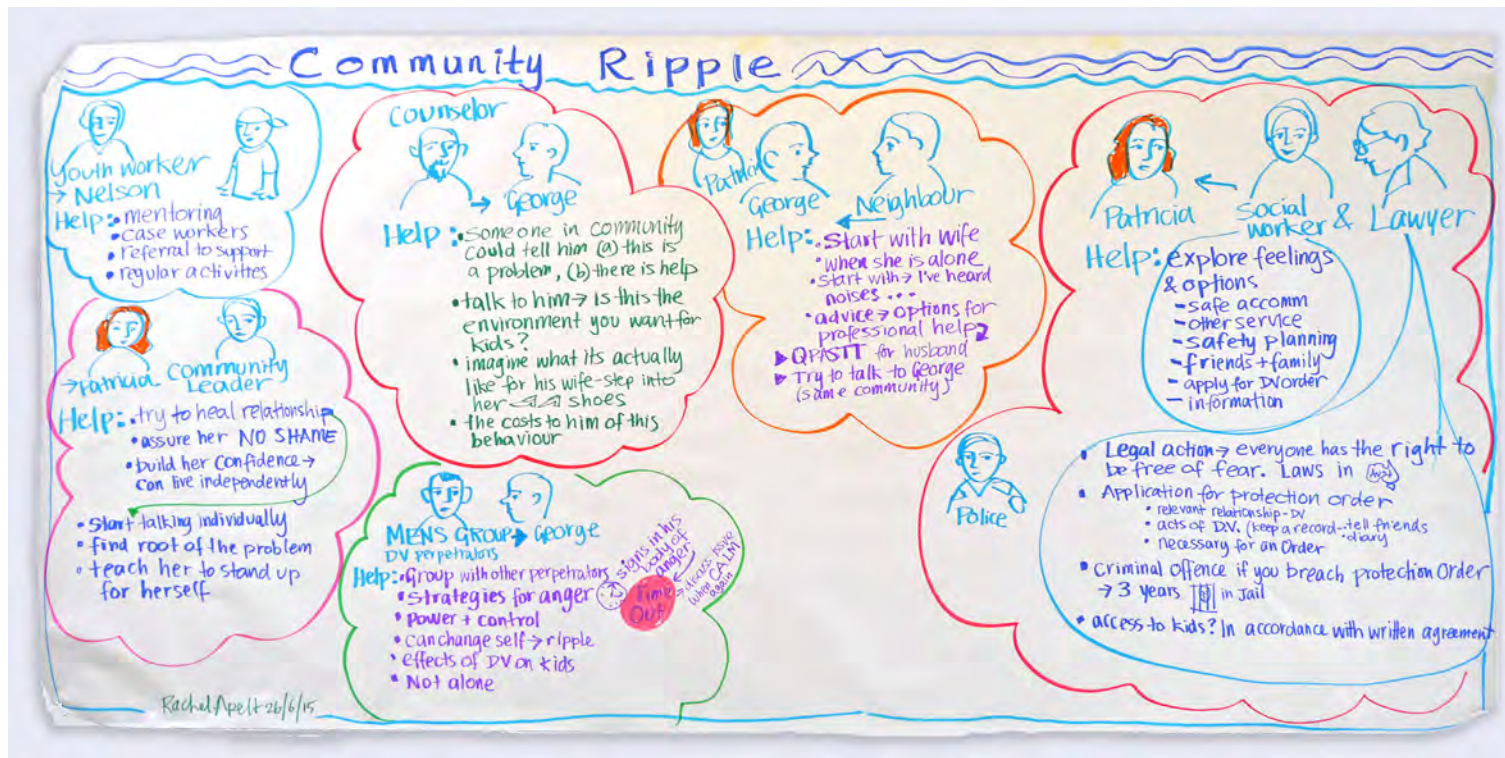 Community Ripple
Youth worker
→ Nelson
Help: • mentoring
• case workers
• referral to support
• regular activities
→ Patricia Community
Leader
Help: • try to heal relationship
• assure her NO SHAME
• build her confidence →
can live independently
• Start talking individually
• find root of the problem
• teach her to stand up
for herself
Rachel Apelt 26/6/15
Counselor
→ George
Help: • someone in community
could tell him (a) this is
a problem, (b) there is help
• talk to him → is this the
environment you want for
kids?
• imagine what its actually
like for his wife - step into
her shoes
• the costs to him of this
behaviour
MENS GROUP → George
DV perpetrators
Help: • Group with other perpetrators
• Strategies for anger
• Power + control
• can change self → ripple
• effects of DV on kids
• Not alone
signs in his
body of
anger
Time
Out
→ discuss issue
when CALM
again
Patricia
George ← Neighbour
Help: • Start with wife
• when she is alone
• Start with → I've heard
noises ...
• advice → options for
professional help
▶ QPASTT for husband
▶ Try to talk to George
(same community)
Patricia ← Social
worker & Lawyer
Help: explore feelings
& options
- safe accomm
- other service
- safety planning
- friends + family
- apply for DV order
- information
Police
• Legal action → everyone has the right to
be free of fear. Laws in
• Application for protection order
• relevant relationship - DV
• acts of D.V. (keep a record - tell friends
- diary
• necessary for an Order
• criminal offence if you breach protection Order
→ 3 years in Jail
• access to kids? In accordance with written agreement